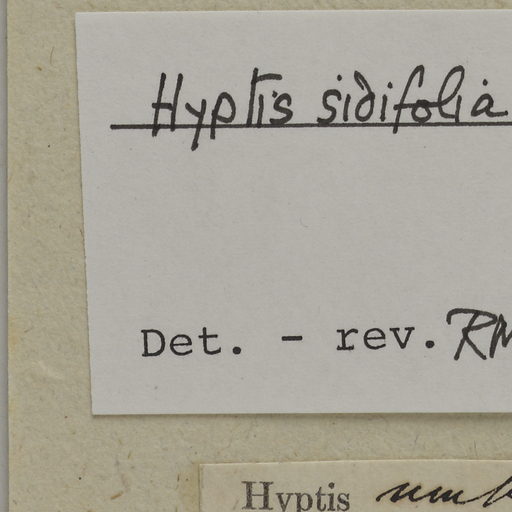 Hyptis sidifolia
Det. - rev. RM
Hyptis